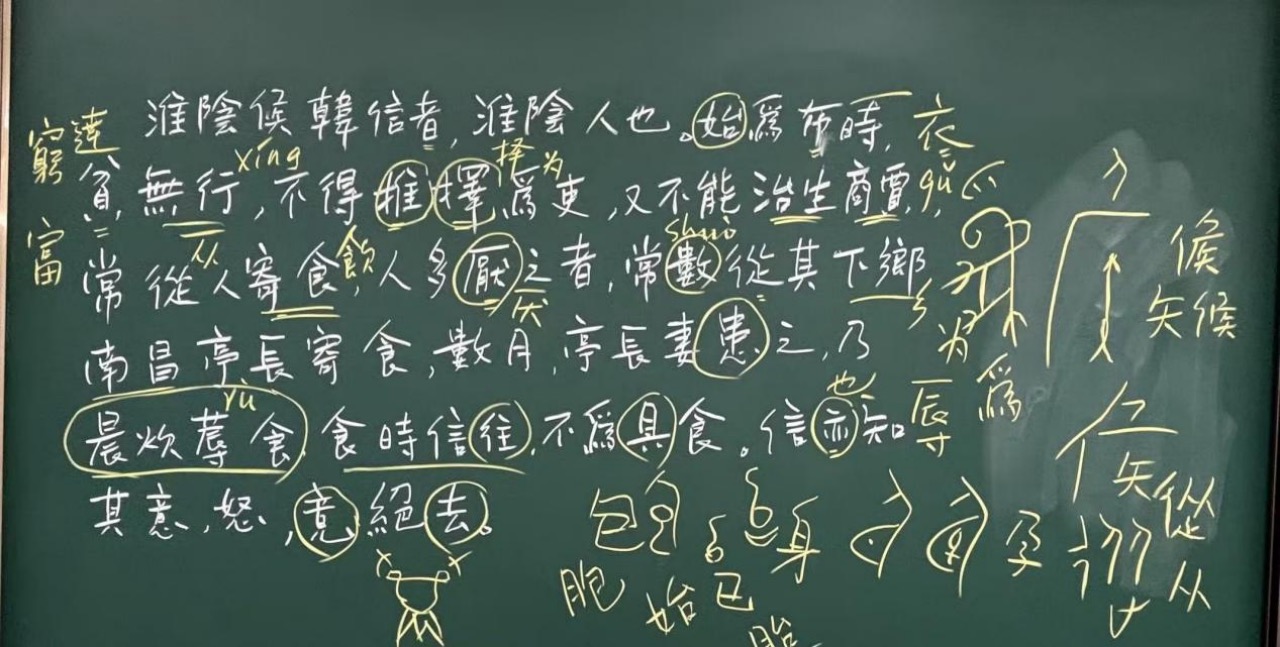 淮陰候韓信者,淮陰人也。始爲布時,衣
窮達
xíng
择为
貧,無行,不得推擇爲吏,又不能治生商賈,gǔ
富
从
shuò
常從人寄食飲,人多厭之者,常數從其下鄉
厌
乡
南昌亭長寄食,數月,亭長妻患之,乃
为爲
rù
也
晨炊蓐食,食時信往,不爲具食。信亦知
辰寸
其意,怒,竟絕去。
候
矢候
矢
包
身
孕
從
从
胞
始
巳
胎